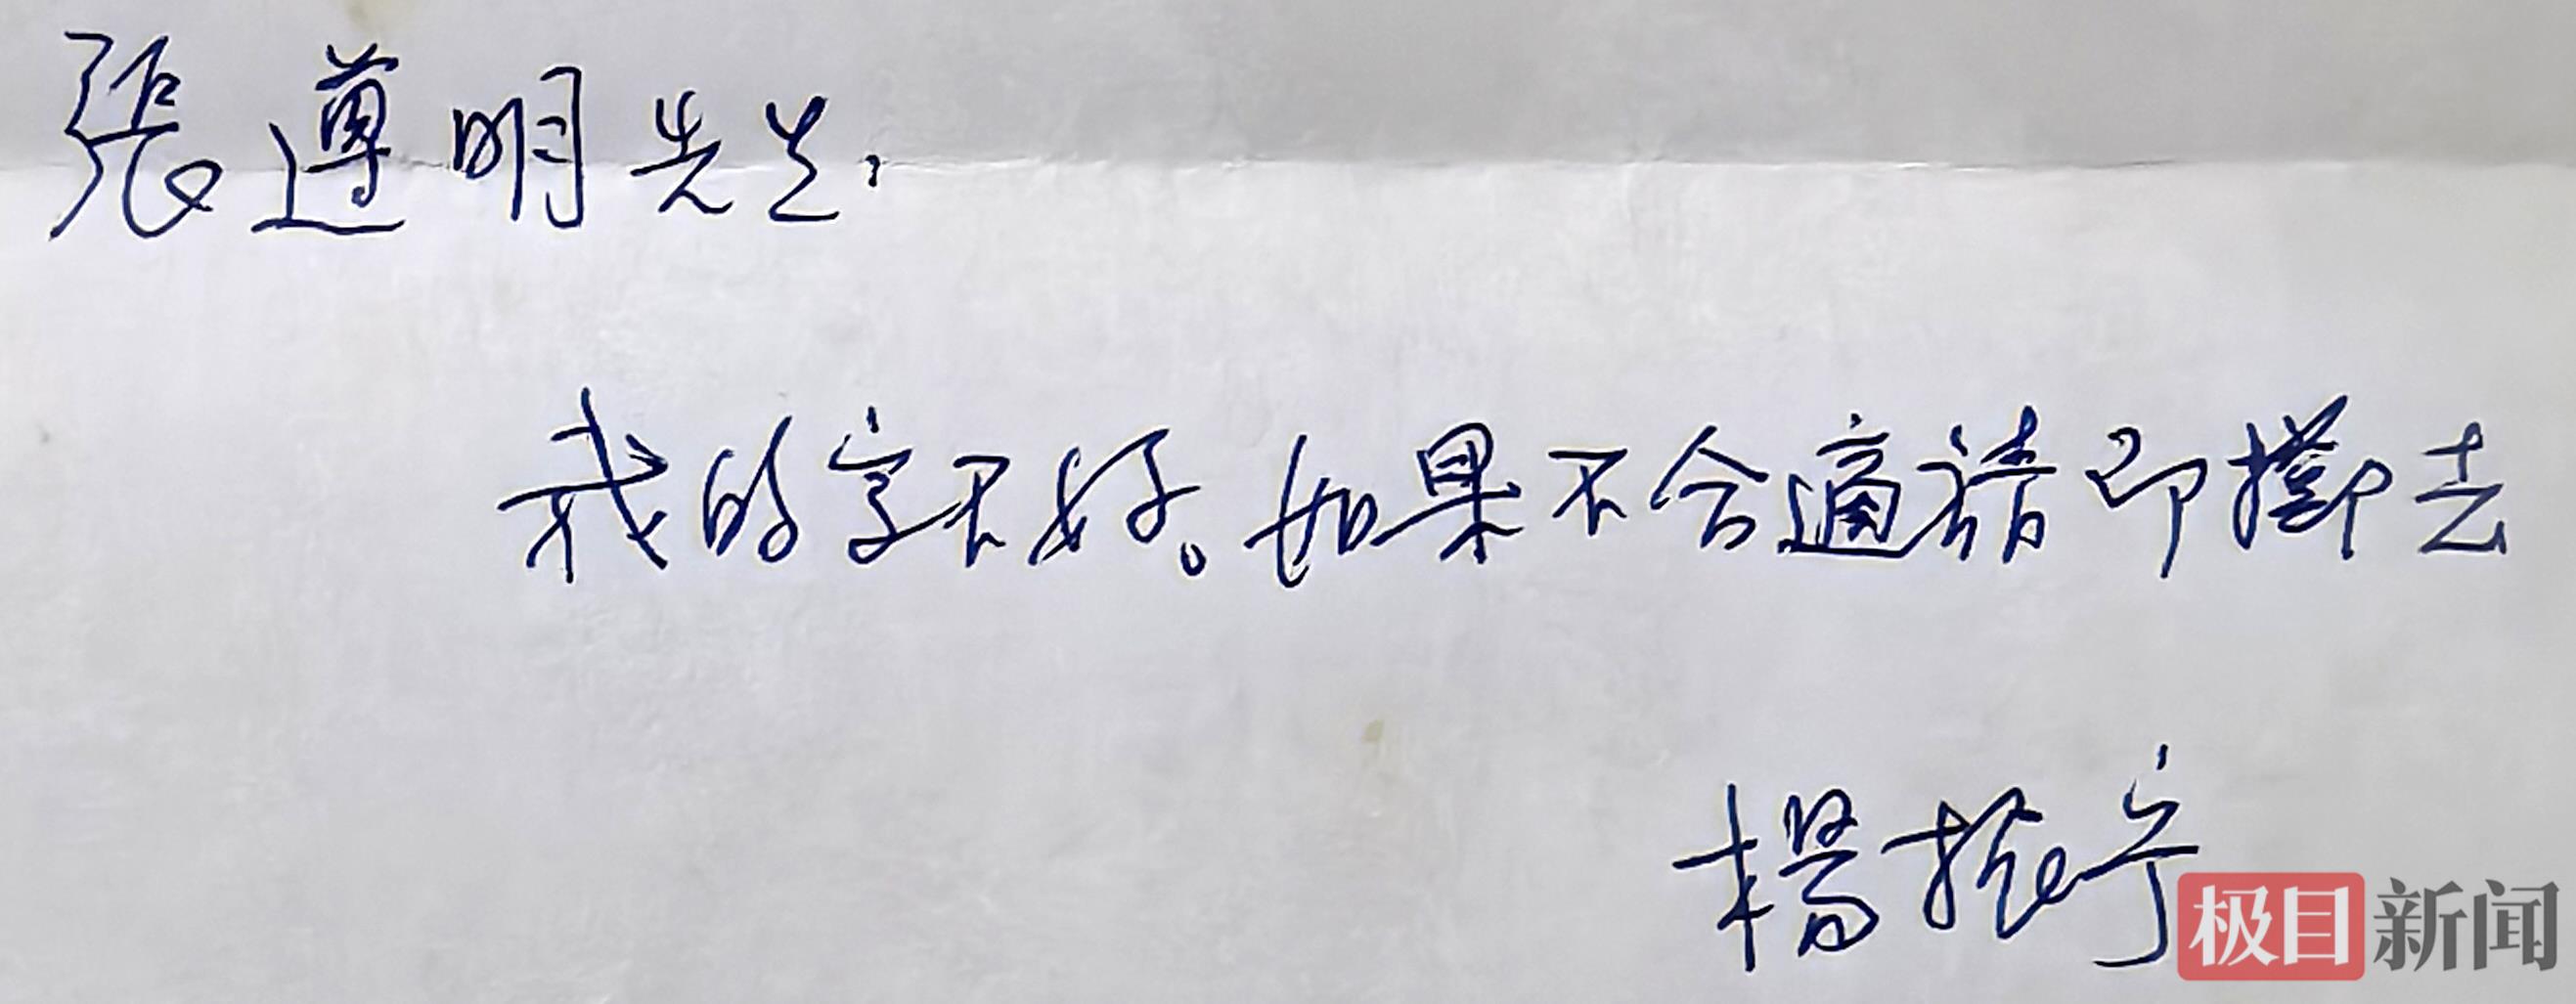 張遵明先生:
我的字不好。如果不合適請即擲去
楊振宁
极目新闻